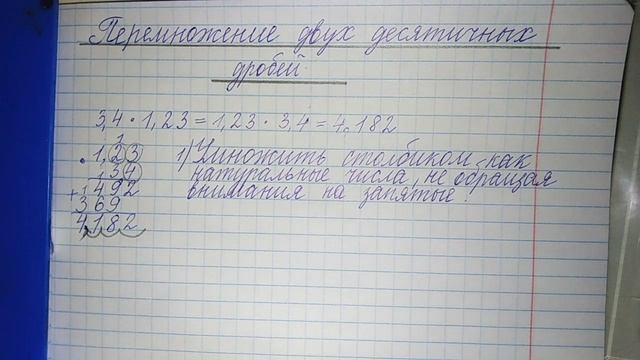 Перемножение двух десятичных
дробей
3,4 · 1,23 = 1,23 · 3,4 = 4,182
1
· 1,23
3,4
1) Умножить столбиком, как
+ 1 492
натуральные числа, не обращая
369
внимания на запятые!
4,182